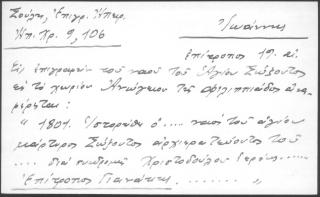 Σούλης, Ἐπιγρ. Ἠπείρ.
Ἠπ. Χρ. 9, 106
Ἰωάννης
ἐπίτροπος 19. αἰ.
Εἰς ἐπιγραφὴν τοῦ ναοῦ τοῦ Ἁγίου Σώζοντος
εἰς τὸ χωρίον Ἀνώγειον τῆς Φιλιππιάδος ἀνα-
φέρεται:
"1801. Ἱστορήθη ὁ .... ναὸς τοῦ ἁγίου
μάρτυρος Σώζοντος ἀρχιερατεύοντος τοῦ
.... διὰ συνδρομῆς Χριστοδούλου .....
Ἐπίτροπος Γιανάκης ........ "